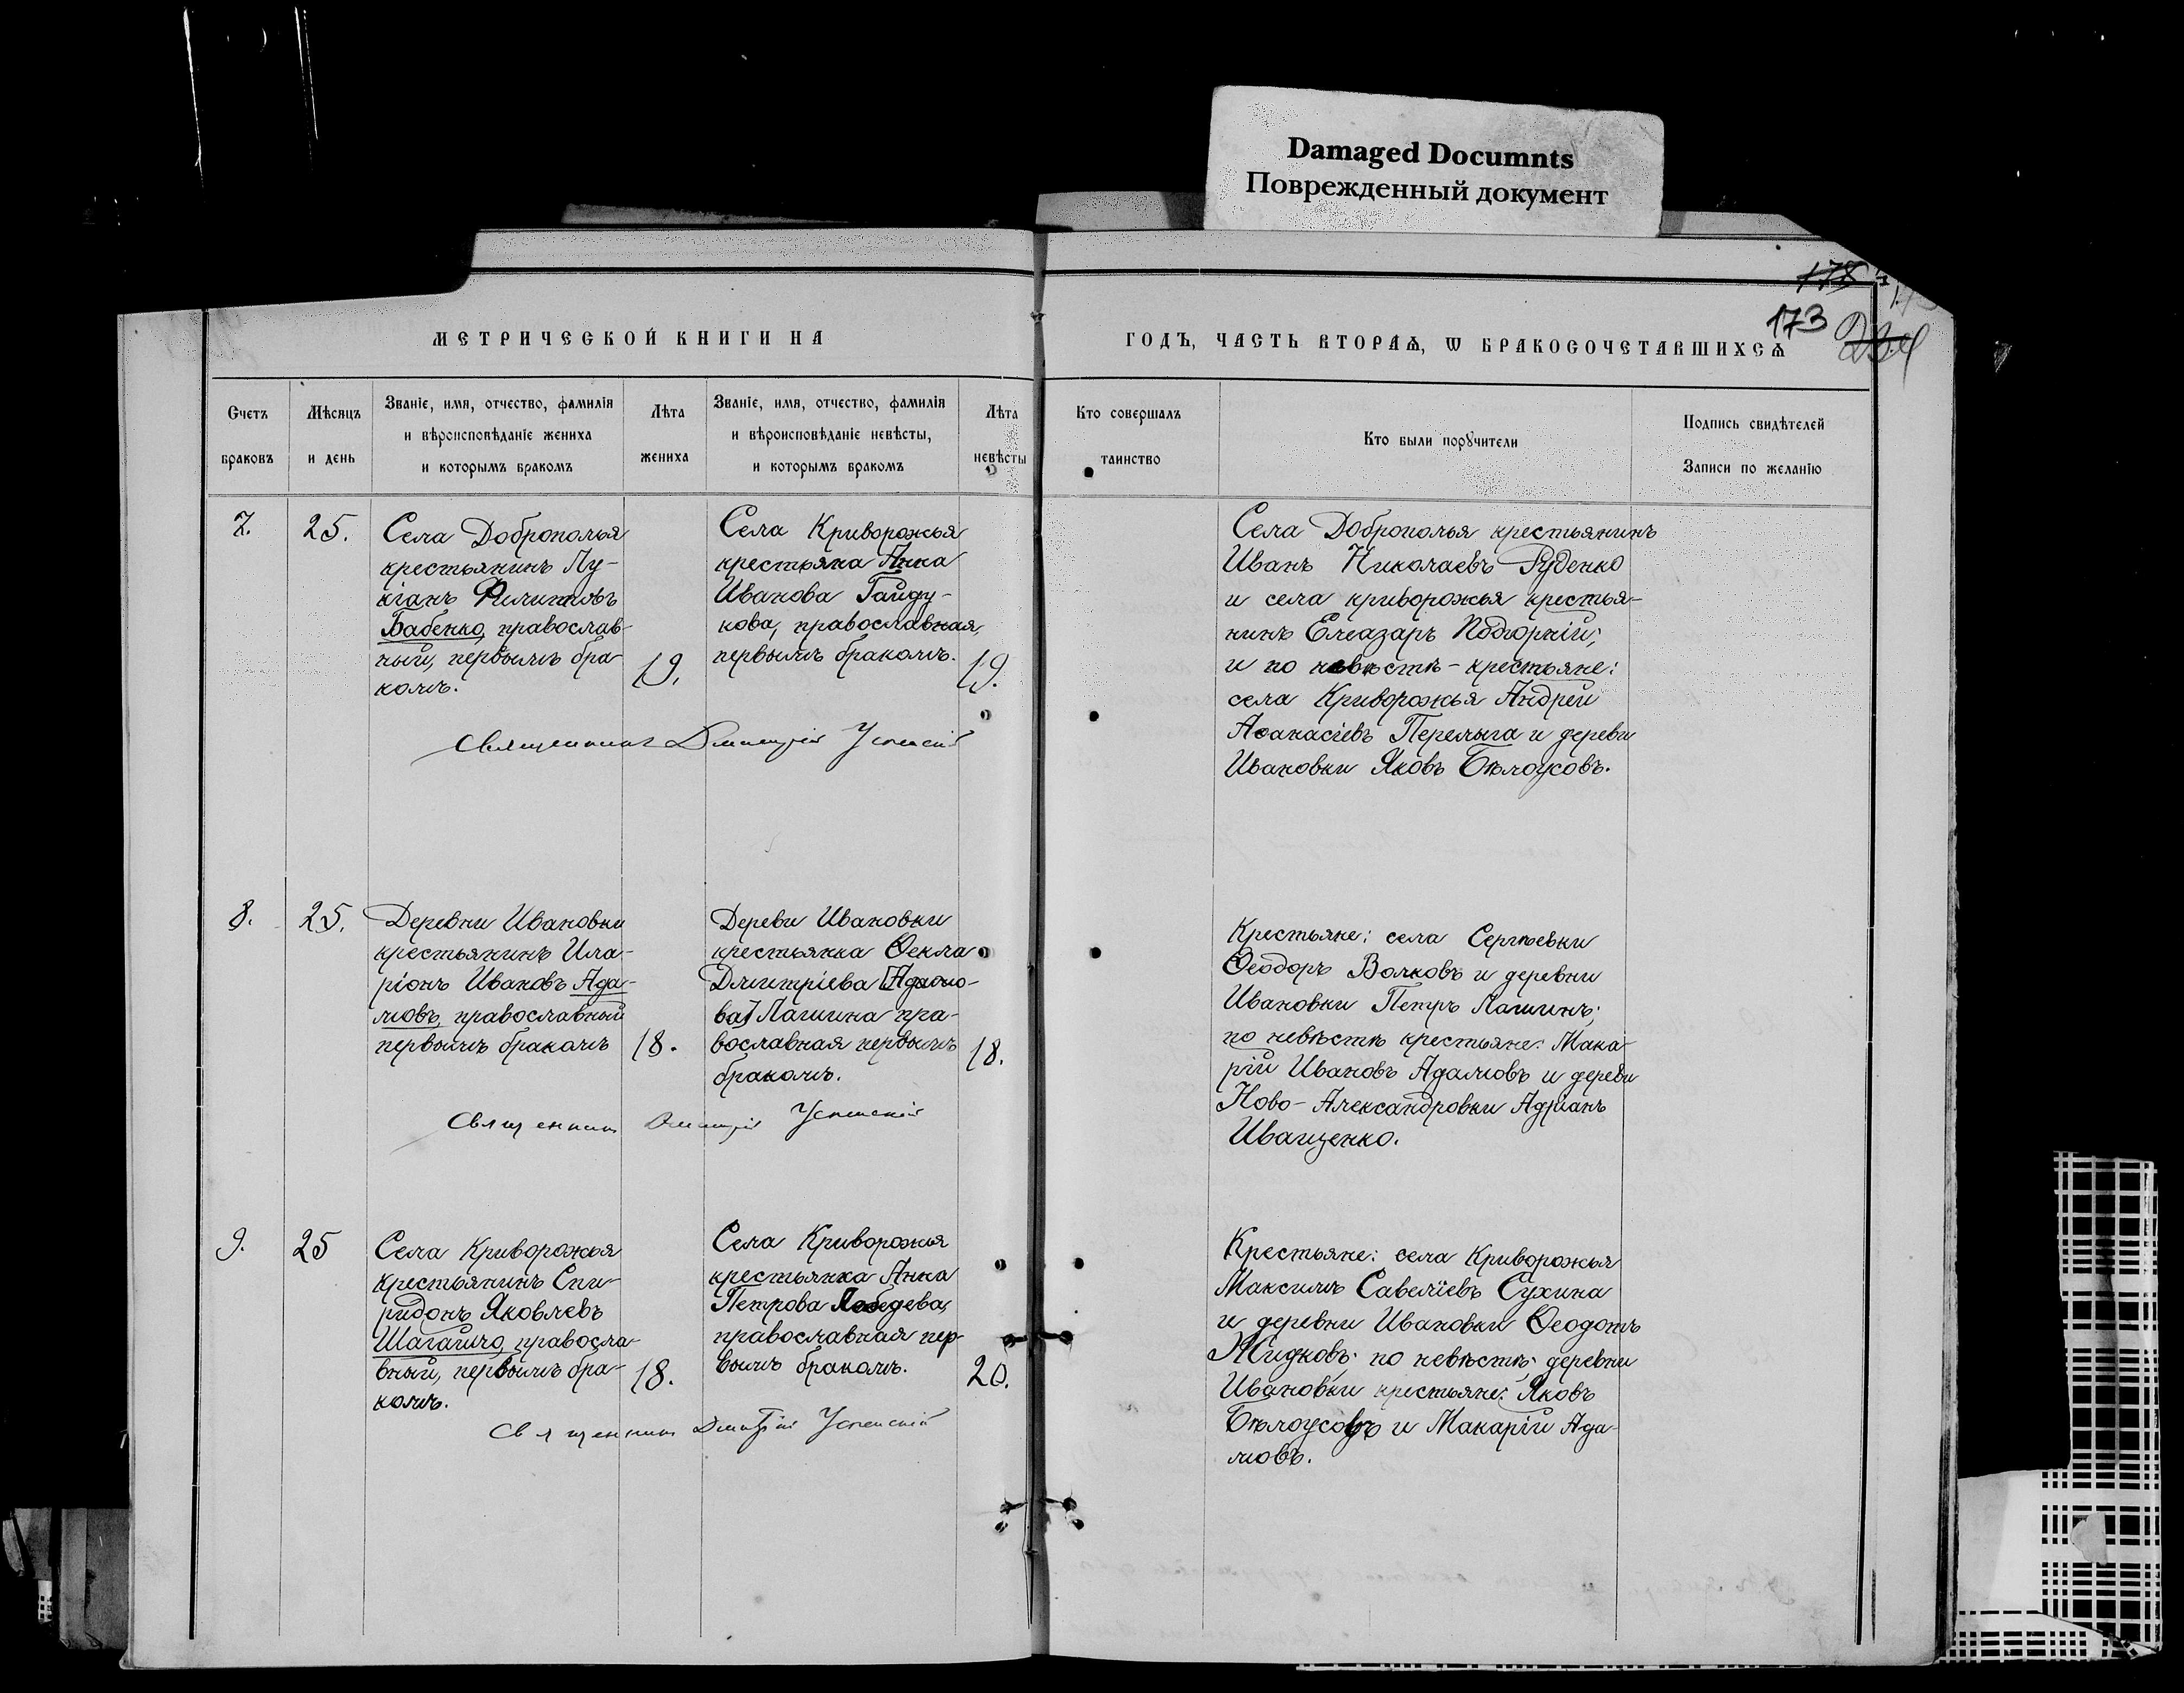 Damaged Documnts
Поврежденный документ
178
173
234
МЕТРИЧЕСКОЙ КНИГИ НА
ГОДЪ, ЧАСТЬ ВТОРАѦ, Ѡ БРАКОСОЧЕТАВШИХСѦ
Счетъ
браковъ
Мѣсяцъ
и день
Званіе, имя, отчество, фамилія
и вѣроисповѣданіе жениха
и которымъ бракомъ
Лѣта
жениха
Званіе, имя, отчество, фамилія
и вѣроисповѣданіе невѣсты,
и которымъ бракомъ
Лѣта
невѣсты
Кто совершалъ
таинство
Кто были порꙋчители
Подпись свидѣтелей
Записи по желанію
7.
25.
Села Доброполья
крестьянинъ Лу-
кіанъ Филиповъ
Бабенко, православ-
ный, первымъ бра-
комъ.
19.
Села Криворожья
крестьяка Анна
Иванова Гайду-
кова, православная,
первымъ бракомъ.
19.
Священникъ Димитрій Успенскій
Села Доброполья крестьянинъ
Иванъ Николаевъ Руденко
и села криворожья крестья-
нинъ Елеазаръ Подгорній;
и по невѣстѣ - крестьяне:
села Криворожья Андрей
Аѳанасіевъ Перелыга и деревн
Ивановки Яковъ Бѣлоусовъ.
8.
25.
Деревни Ивановки
крестьянинъ Ила-
ріонъ Ивановъ Ада-
мовъ, православный
первымъ бракомъ
18.
Дереви Ивановки
крестьянка Ѳекла
Дмитріева [Адамо-
ва] Лашина пра-
вославная первымъ
бракомъ.
18.
Священникъ Димитрій Успенскій
Крестьяне: села Сергѣевки
Ѳеодоръ Волковъ и деревни
Ивановки Петръ Лашинъ;
по невѣстѣ крестьяне: Мака-
рій Ивановъ Адамовъ и дереви
Ново-Александровки Адріанъ
Иващенко.
9.
25
Села Криворожья
крестьянинъ Спи-
ридонъ Яковлевъ
Шагайло, правосла-
вный, первымъ бра-
комъ.
18.
Села Криворожья
крестьянка Анна
Петрова Лебедева,
православная пер-
вымъ бракомъ.
20.
Священникъ Дмитрій Успенскій
Крестьяне: села Криворожья
Максимъ Савеліевъ Сухина
и деревни Ивановки Ѳеодотъ
Жидковъ; по невѣстѣ: деревни
Ивановки крестьяне: Яковъ
Бѣлоусовъ и Макарій Ада-
мовъ.